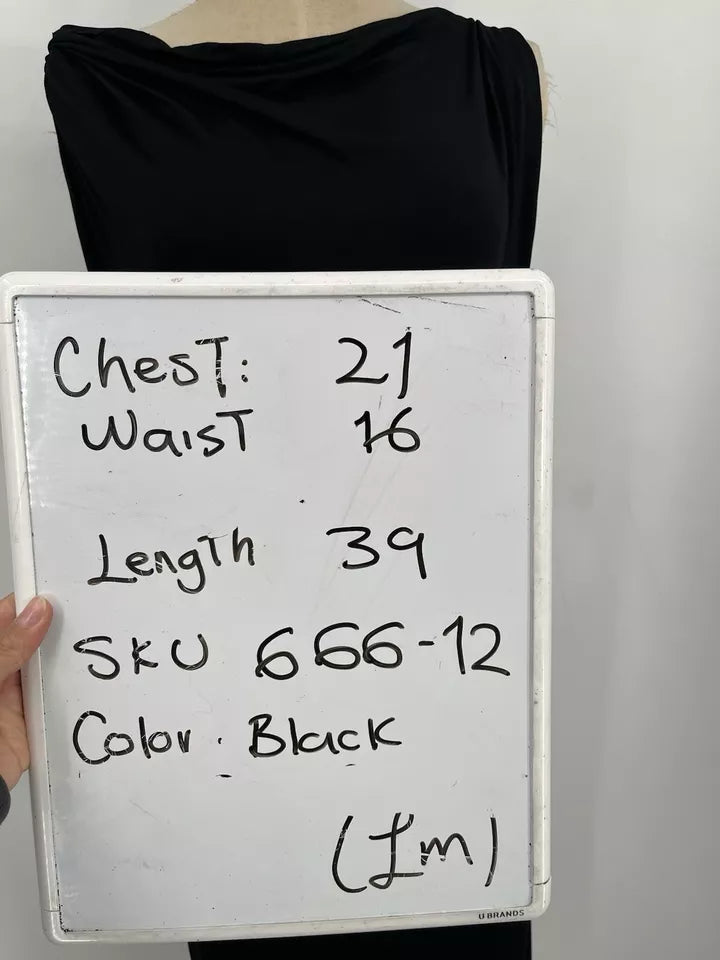 Chest: 21
Waist 16
Length 39
SKU 666-12
Color. Black
U BRANDS